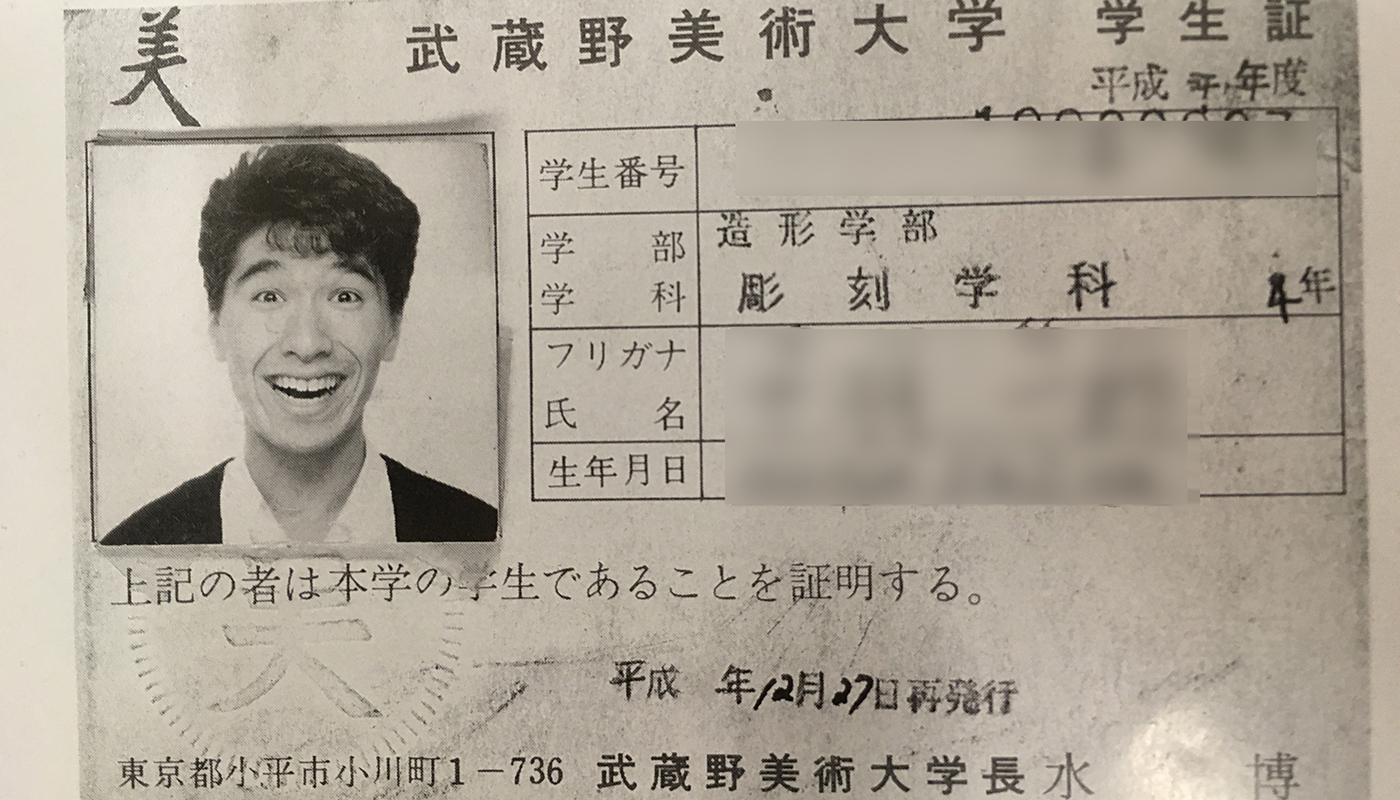 美
武蔵野美術大学 学生証
平成 年度
学生番号
学部 造形学部
学科 彫刻学科 年
フリガナ
氏名
生年月日
上記の者は本学の学生であることを証明する。
平成 年12月27日再発行
東京都小平市小川町1-736 武蔵野美術大学長 水 博